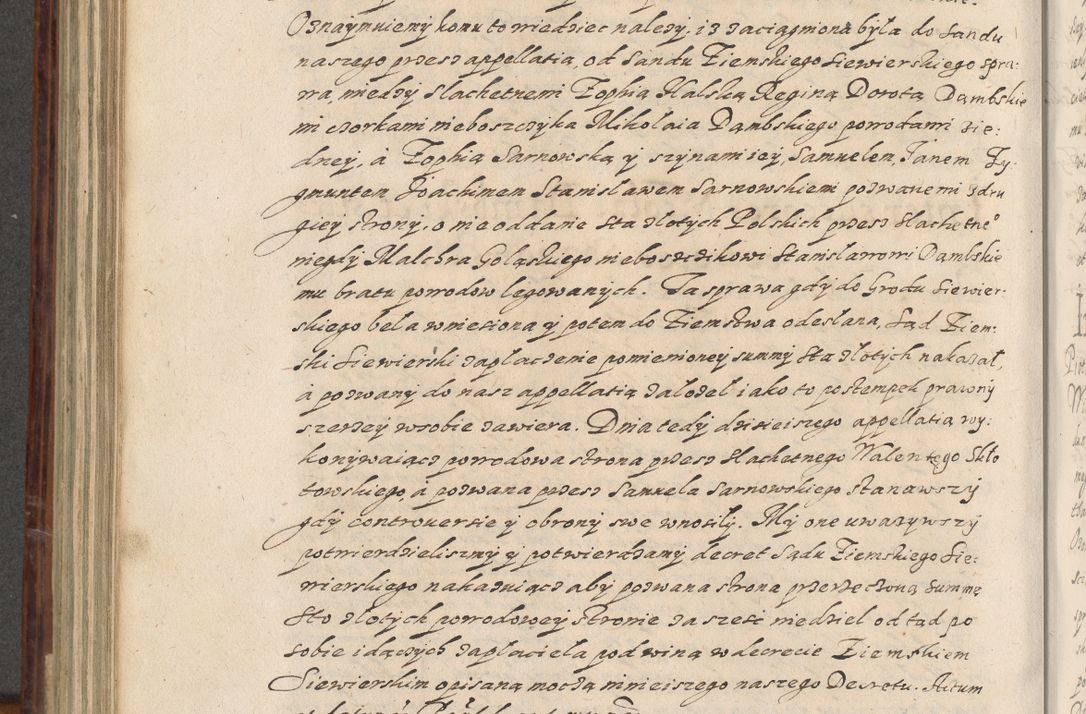 Oznaymuiemy komu to wiedziec należy. iz zaciągniona była do sandu
naszego przez appellatią, od sandu Ziemskiego Siewierskiego spra-
wa, miedzy Slachetnemi Zophią Halską Reginą Dorotą Dambskie
mi czorkami nieboszczyka Mikolaia Dambskiego powodami zie-
dney, á Zophią Sarnowską y szynami iey, Samuelem, Janem Zy-
gmuntem Joachimem Stanislawem Sarnowskiemi pozwanemi zdru
giey strony, o nie oddanie sta złotych Polskich przez slachetne°
niegdy Malchra Goląskiego nieboszczikowi Stanislawowi Dambskie
mu bratu powodow legowanych. Ta sprawa gdy do Grodu Siewier-
skiego bela wniesiona y potem do Ziemstwa odeslana, Sąd Ziem-
ski Siewierski zaplaczenie pomienioney summy sta złotych nakazał,
á pozwany do nasz appellatią zalozel iako to postempek prawny
szerzey wsobie zawiera. Dnia tedy dzisieiszego appellatią wy-
konywaiącz powodowa strona przez slachetnego Walentego Skło
towskiego, á pozwana przez Samuela Sarnowskiego stanawszy
gdy controuersie y obrony swe wnosily. My one uwazywszy
potwierdzieliszmy y potwierdzamy decret Sądu Ziemskiego Sie-
wierskiego nakazuiącz aby pozwana strona przerzeczoną summę
sto zlotych powodowey stronie za szesc niedziel od tąd po
sobie idączych zaplaciela pod winą w decrecie Ziemskiem
Siewierskim opisaną moczą ninieiszego naszego Decretu. Actum